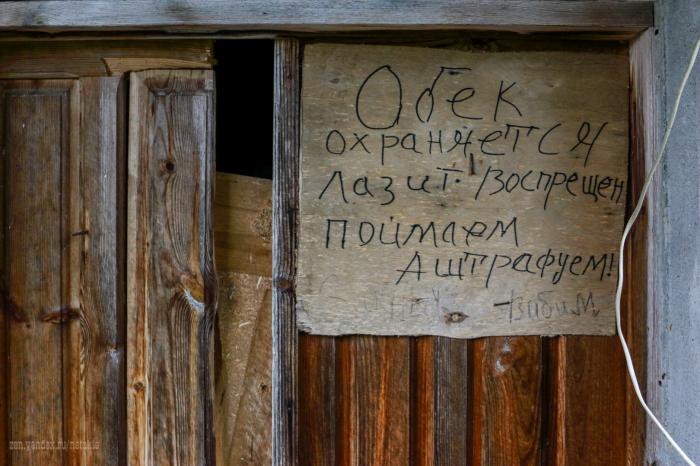 Обек
охраняется
Лазит. воспрещен
поймаем
Аштрафуем!
zen.yandex.ru/netakie